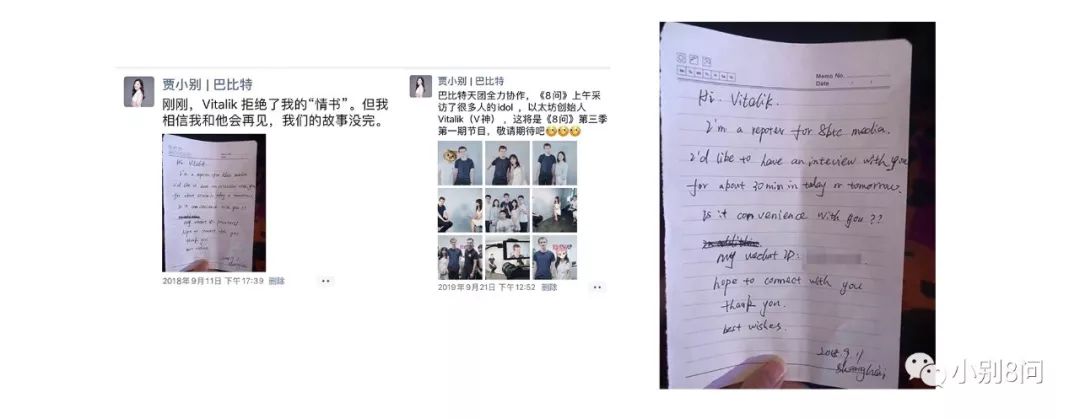 贾小别 | 巴比特
刚刚，Vitalik 拒绝了我的“情书”。但我
相信我和他会再见，我们的故事没完。
2018年9月11日 下午17:39 删除
贾小别 | 巴比特
巴比特天团全力协作，《8问》上午采
访了很多人的idol ，以太坊创始人
Vitalik（V神），这将是《8问》第三季
第一期节目，敬请期待吧
2019年9月21日 下午12:52 删除
Memo No.
Date
Hi. Vitalik.
I'm a repoter for 8btc media.
I'd like to have an interview with you
for about 30 min in today or tomorrow.
Is it convenience with you ??
my wechat ID:
hope to connect with you
thank you.
best wishes.
2018.9.11
shanghai
小别8问